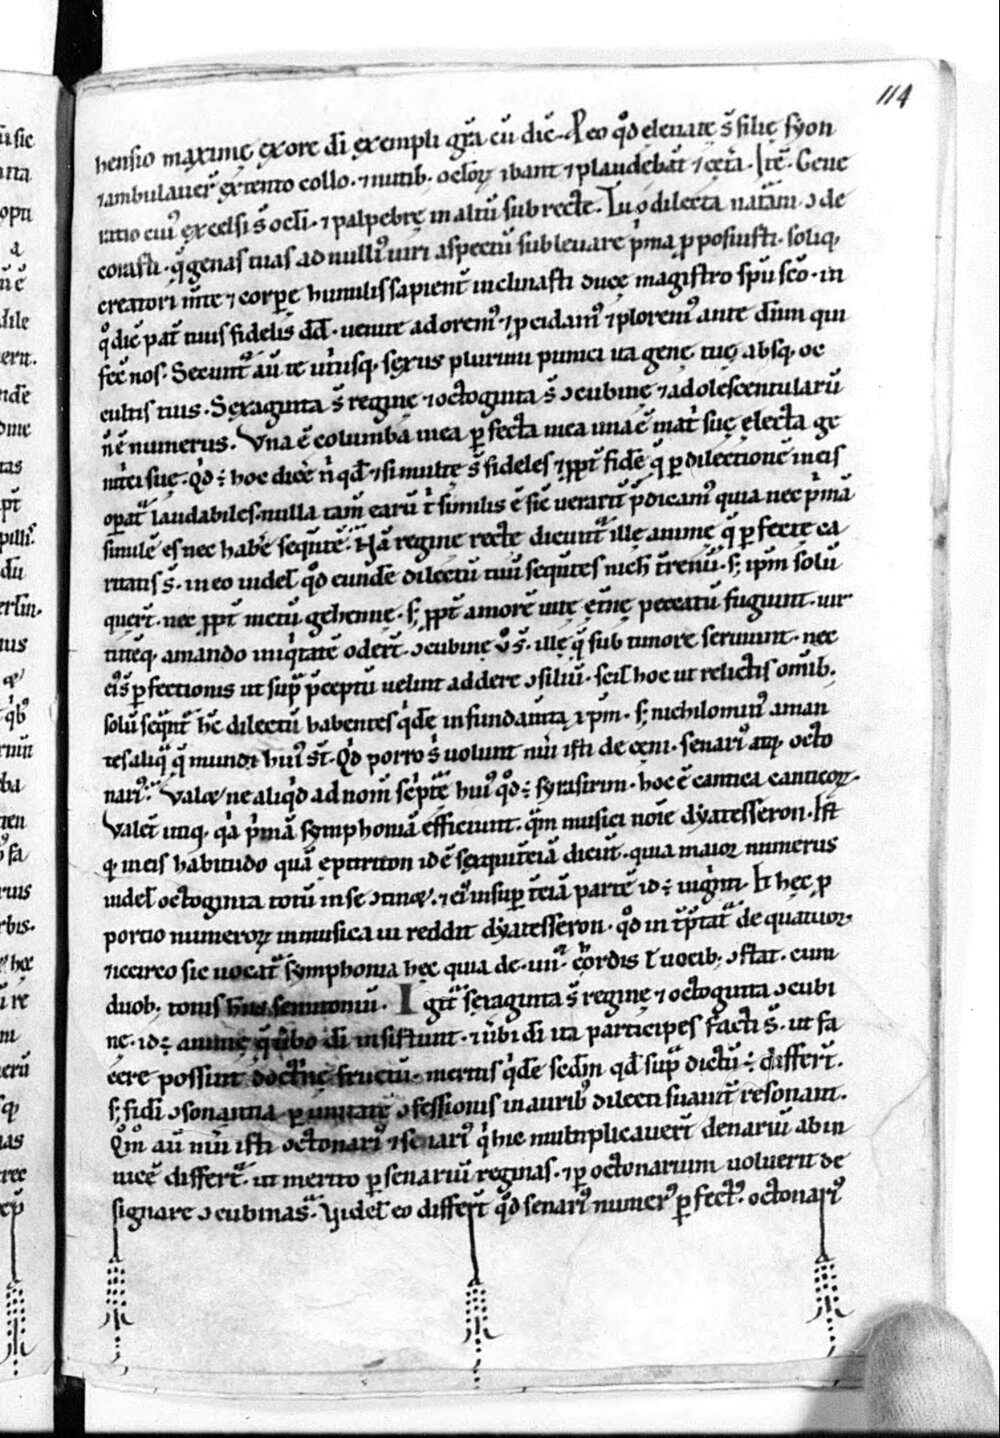 114
hensio maxime ex ore dī exempli grā cū dic̄. P eo qd̄ eleuate s̄ filię syon
⁊ambulauer̄ extento collo. ⁊ nutib. oclōꝝ ibant ⁊ plaudebāt ⁊ cet̄a. Itē. Gene
ratio cui᷒ excelsi s̄ ocl̄i. ⁊ palpebrę in altū subrecte. Tu o dilecta natām. ɔ de
corasti. q̄ genas tuas ad nulli᷒ uiri aspectū subleuare p̄ma p̱posuisti. soliq.
creatori m̄te ⁊ corꝑe humilis sapient̄ inclinasti duce magistro sp̄u sc̄o. in
q̊ dic̄ pat̄ tuus fidelis dd̄. uenite adorem᷒ ⁊ p̱cidam᷒ ⁊ plorem᷒ ante dn̄m qui
fec̄ nos. Secunt᷑ aū te ut̄iusq. sexus plurimi punici ita genę. tuę absq. oc
cultis tuis. Sexaginta s̄ reginę ⁊ octoginta s̄ ɔcubinę ⁊ adolescentularū
n̄ ē numerus. Vna ē columba mea ꝑfecta mea una ē mat̄ suę electa ge
nit̄ci suę. Qd̄ ÷ hoc dicē n̄ qd̄ ⁊ si multę s̄ fideles ⁊ ꝓpt̄ fidē q̄ ꝑ dilectionē in eis
opat᷑ laudabiles. nulla tam̄ earū t̄ similis ē sic̄ uerarit᷑ p̄dicam᷒ quia nec p̄mā
similē es nec habe sequt̄ē. Ha reginę recte dicunt᷑ illę animę q̄ ꝑfecte ca
ritatis s̄. in eo uidel̄ qd̄ eundē dilectū tuū sequt̄es nich t̄renū. s; ipm̄ solū
quer̄t. nec ꝓpt̄ metū gehennę. s; ꝓpt̄ amorē uitę et̄nę peccatū fugiunt. uir
tuteq. amando iniq̇tatē oder̄t. ɔcubinę ū s̄. illę q̄ sub timore seruiunt. nec
ei᷒ s̄ ꝑfectionis ut sup̄ p̄ceptū uelint addere ɔsiliū. scil̄ hoc ut relictis om̄ib.
solū seq̄nt᷑ hc̄ dilectū habentes q̇dē in fundam̄ta ipm̄. s; nichilomin᷒ aman
tes aliq̄ q̄ mundi hui᷒ st̄. Qd̄ porro s̄ uolunt nūi isti de ceni. senari᷒ atq. octo
nari᷒. Valde ne aliq̇d ad nom̄ sc̄ptē hui᷒ qd̄ ÷ syrasirim. hoc ē cantica canticoꝝ.
Valet utiq. qa p̄mā symphoniā efficiunt. q̄m musici noīe dyatesseron. Ist̄
q. in eis habitudo quā epitriton idē sexquit̄ciā dicūt. quia maior numerus
uidel̄ octoginta totū in se ɔtinet. ⁊ ei᷒ insuꝑ t̄ciā partē id ÷ uiginti. Et hęc ꝓ
portio numeroꝝ in musica ui reddit dyatesseron. qd̄ int̄p̄tat᷑ de quatuor
⁊ iccirco sic uocat᷑ symphonia hęc quia de .iiii᷒. cordis ł uocib. ɔstat. cum
duob. tonis hn̄s semitoniū. Igit᷑ sexaginta s̄ reginę ⁊ octoginta ɔcubi
nę. id ÷ animę q̄ ūbo dī insistunt. ⁊ ūbi dī ita participes facti s̄. ut fa
cere possint doctinę fructū. meritis q̇dē scdm̄ qd̄ sup̄ dictū ÷ differt̄.
s; fidī ɔsonantia ꝑ unitatē ɔfessionis in aurib᷒ dilecti suauit̄ resonant.
Qm̄ aū nūi isti octonari᷒ ⁊ senari᷒ q̇ hic multiplicauert̄ denariū ab in
uicē differt᷑. ut merito ꝑ senariū reginas. ⁊ ꝑ octonarium uoluerit de
signare ɔcubinas. Uidel̄ eo differt̄ qd̄ senari᷒ numer᷒ ꝑfect᷒. octonari᷒